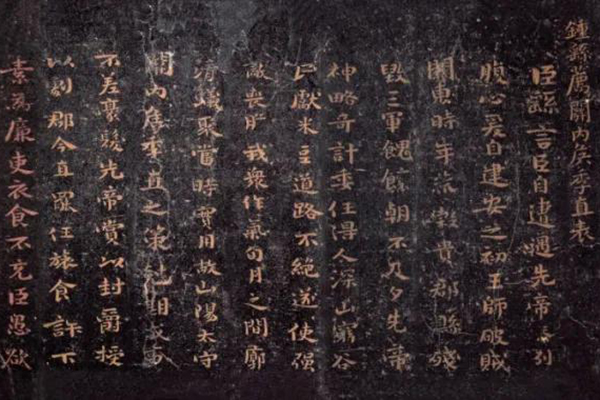 鍾繇薦關內侯季直表
臣繇言臣自遭遇先帝忝列
腹心爰自建安之初王師破賊
關東時年荒穀貴郡縣殘
毀三軍餽饟朝不及夕先帝
神略奇計委任得人深山窮谷
民獻米豆道路不絕遂使强
敵喪膽我衆作氣旬月之間廓
清蟻聚當時實用故山陽太守
關內侯季直之策剋期成事
不差豪髮先帝賞以封爵授
以劇郡今直罷任旅食許下
素為廉吏衣食不充臣愚欲